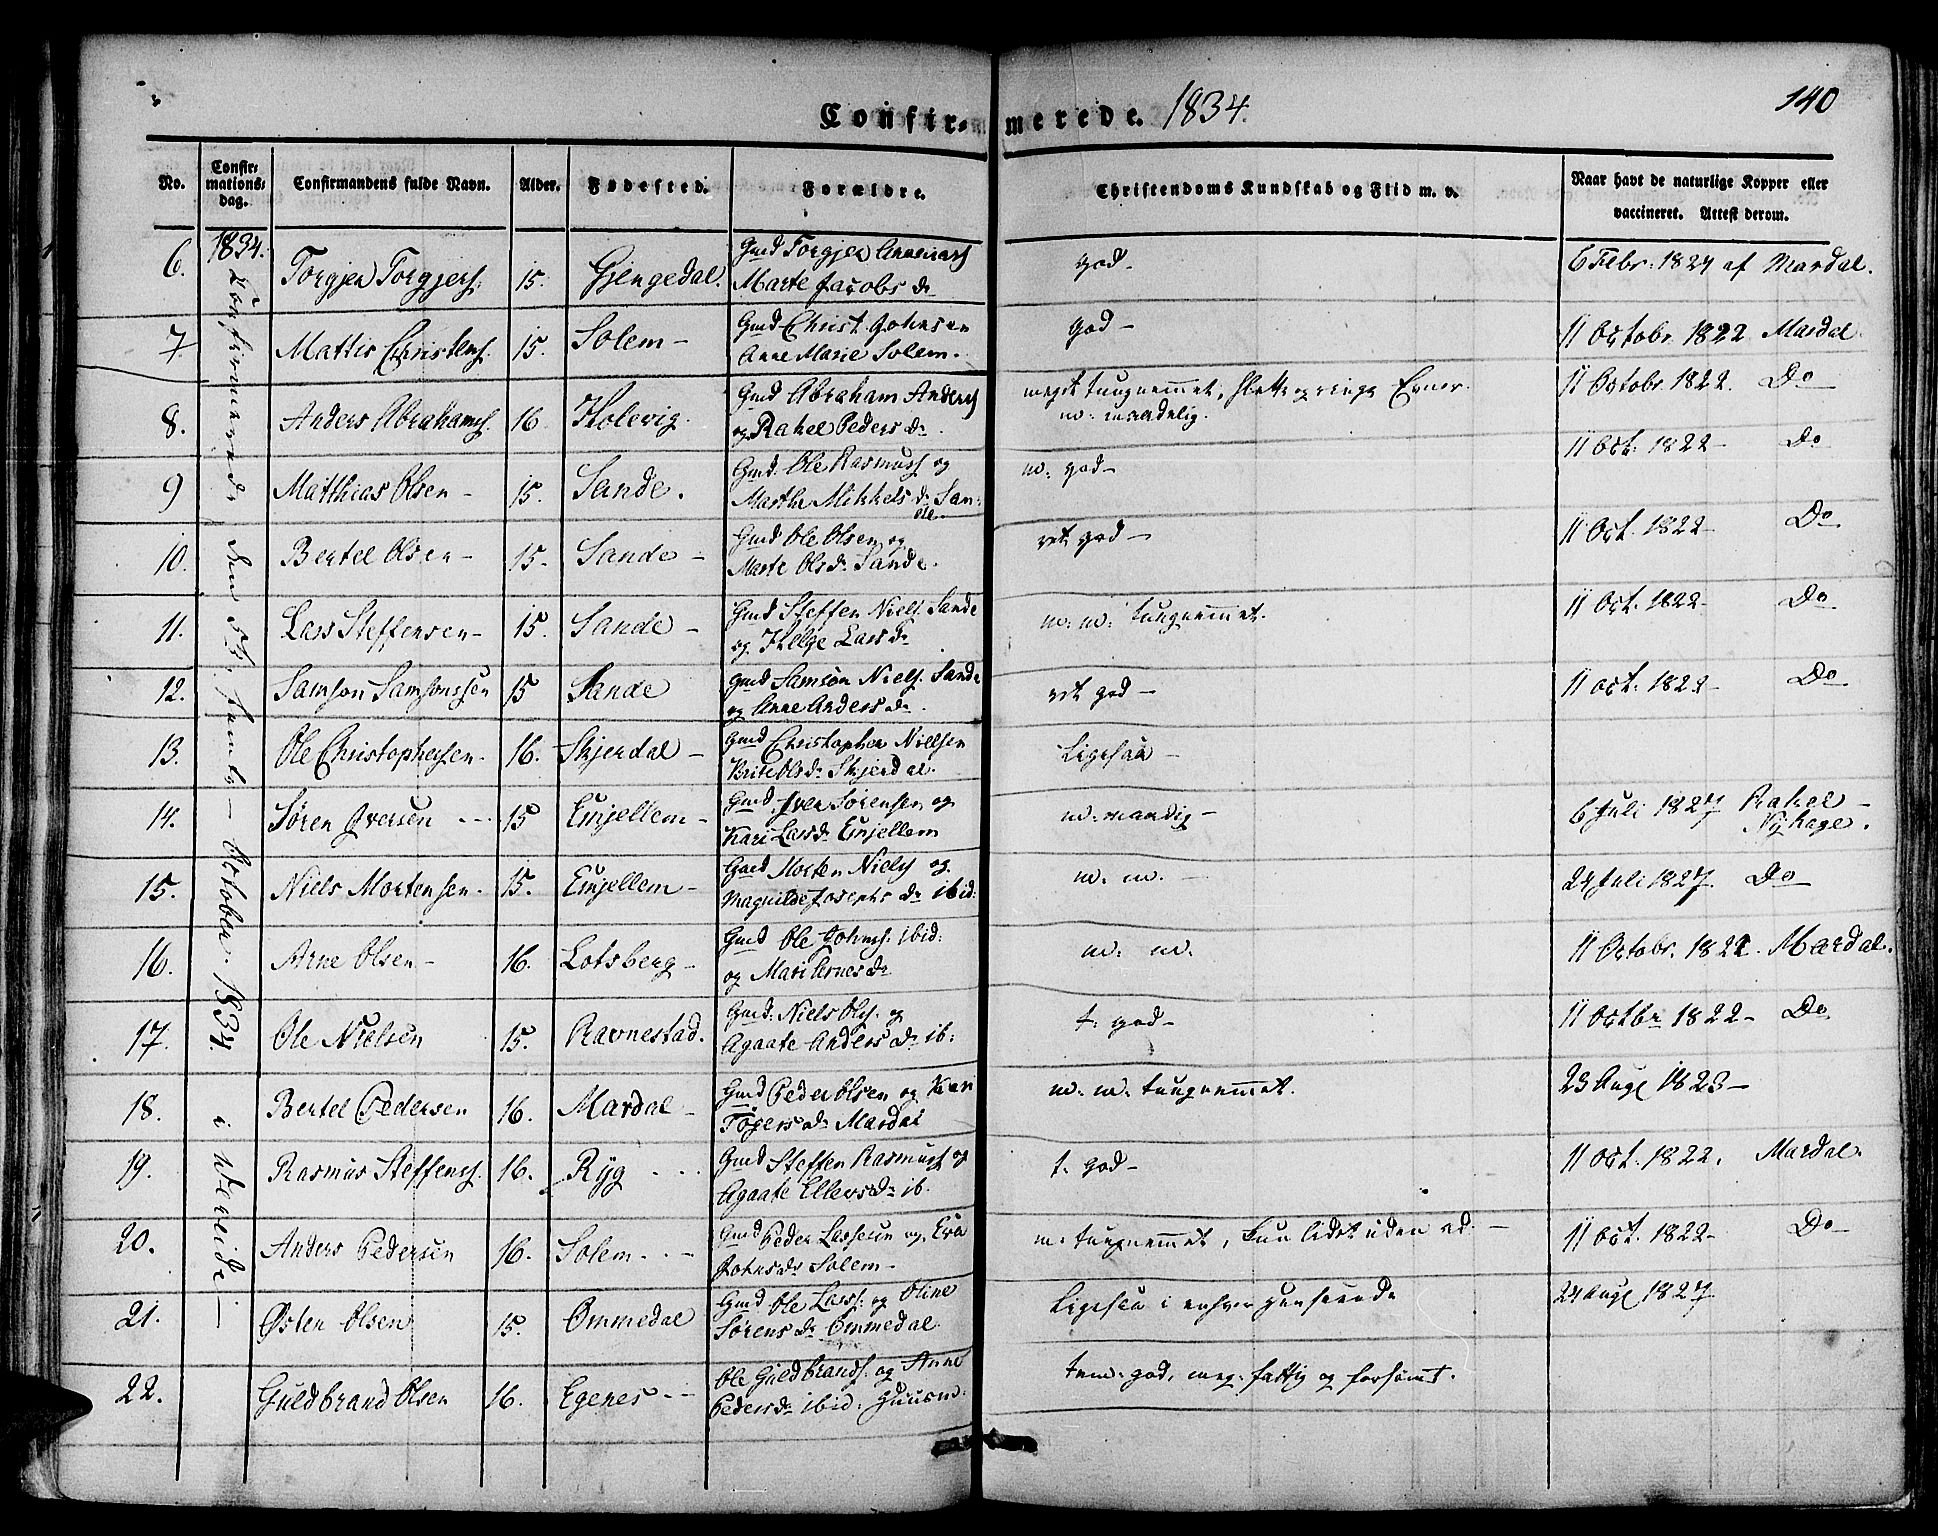 140
Confirmerede. 1834.
No.
Confirmations dag.
Confirmandens fulde Navn.
Alder.
Fødested.
Forældre.
Christendoms Kundskab og Flid m. v.
Naar havt de naturlige Kopper eller vaccineret. Attest derom.
1834.
Confirmerede den 5te October 1834 i Wereide
6. Torgjer Torgjers. 15. Gjengedal. Gmd Torgjer
Marte Jacobs dr god- 6 Febr. 1824 af Mardal.
7 Matties Christens. 15. Solem- Gmd Christ. Johnsen
Anne Marie Solem. god- 11 Octobr 1822 Mardal.
8. Anders Abrahams. 16 Holevig. Gmd Abraham Anders
og Rakel Peders dr. meget tungnemmet, slette og ringe Evner. 11 Octobr. 1822. Do
m: maadelig.
9 Matthias Olsen- 15. Sande. Gmd. Ole Rasmuss og
Marthe Mikkels dr San-
de m: god- 11 Oct: 1822- Do
10. Bertel Olsen- 15. Sande- Gmd Ole Olsen og
Marte Ols dr Sande. ret god- 11 Oct. 1822- Do
11. Lars Steffensen- 15. Sande- Gmd Steffen Niels. Sande
og Helge Lars dr m: m: tungnemmet. 11 Oct. 1822- Do
12. Samson Samsonssen 15 Sande Gmd Samson Niels. Sande
og Anne Anders dr. ret god- 11 oct: 1822- Do
13. Ole Christophersen. 16. Skjerdal- Gmd Christopher Nielsen
Brite Ols dr Skjerdal. Ligesaa-
14. Søren Iversen 15 Emjellem- Gmd Iver Sørensen og
Kari Lars dr Emjellem m: maadig- 6 Juli 1827 Rakel-
Nyhage.
15. Niels Mortensen. 15. Emjellem- Gmd Morten Niels og
Magnilde Josephs dr ibid: m: m.- 24 Juli 1827. Do
16. Arne Olsen- 16. Lotsberg- Gmd Ole Johns. ibid:
og Mari Arnes dr m: m. 11 Octobr. 1822 Mardal.
17. Ole Nielsen 15. Ravnestad. Gmd. Niels Ols. og
Agaate Anders dr ib: t: god- 11 Octbr 1822- Do
18. Bertel Pedersen 16. Mardal- Gmd Peder Olsen og Kari
Tøgers dr Mardal m: m: tungnemmet. 23 Aug 1823-
19. Rasmus Steffens. 16. Ryg Gmd Steffen Rasmuss og
Agaate Ellers dr ib. t. god- 11 Oct: 1822. Mardal.
20. Anders Pedersen 16. Solem.- Gmd Peder Lassesen og Eva
Johns dr Solem- m: tungnemmet, kun lidet uden ad.- 11 Oct. 1822- Do-
21. Østen Olsen 15. Ommedal Gmd Ole Larss: og Oline
Sørens dr Ommedal. Ligesaa i enhver henseende 24 Aug 1827
22. Guldbrand Olsen 16. Egenes- Ole Guldbrands. og Anne
Peders dr ibid: Huusm: tem: god, meg: fattig og forsømt.